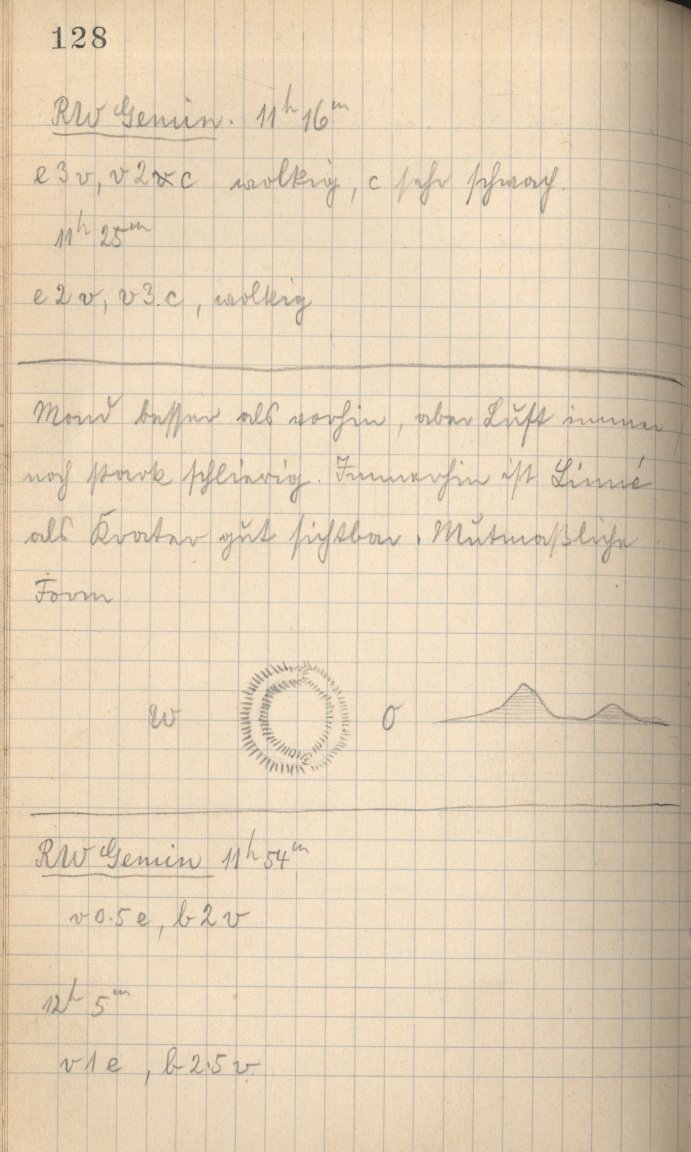 128
RW Gemin. 11h 16m
e 3 v, v 2 c wolkig, c sehr schwach.
11h 25m
e 2 v, v 3. c, wolkig
Mond besser als vorhin, aber Luft immer
noch stark schlierig. Immerhin ist Linné
als Krater gut sichtbar. Mutmaßliche
Form
W O
RW Gemin 11h 54m
v 0.5 e, b 2 v
12h 5m
v 1 e, b 2.5 v.